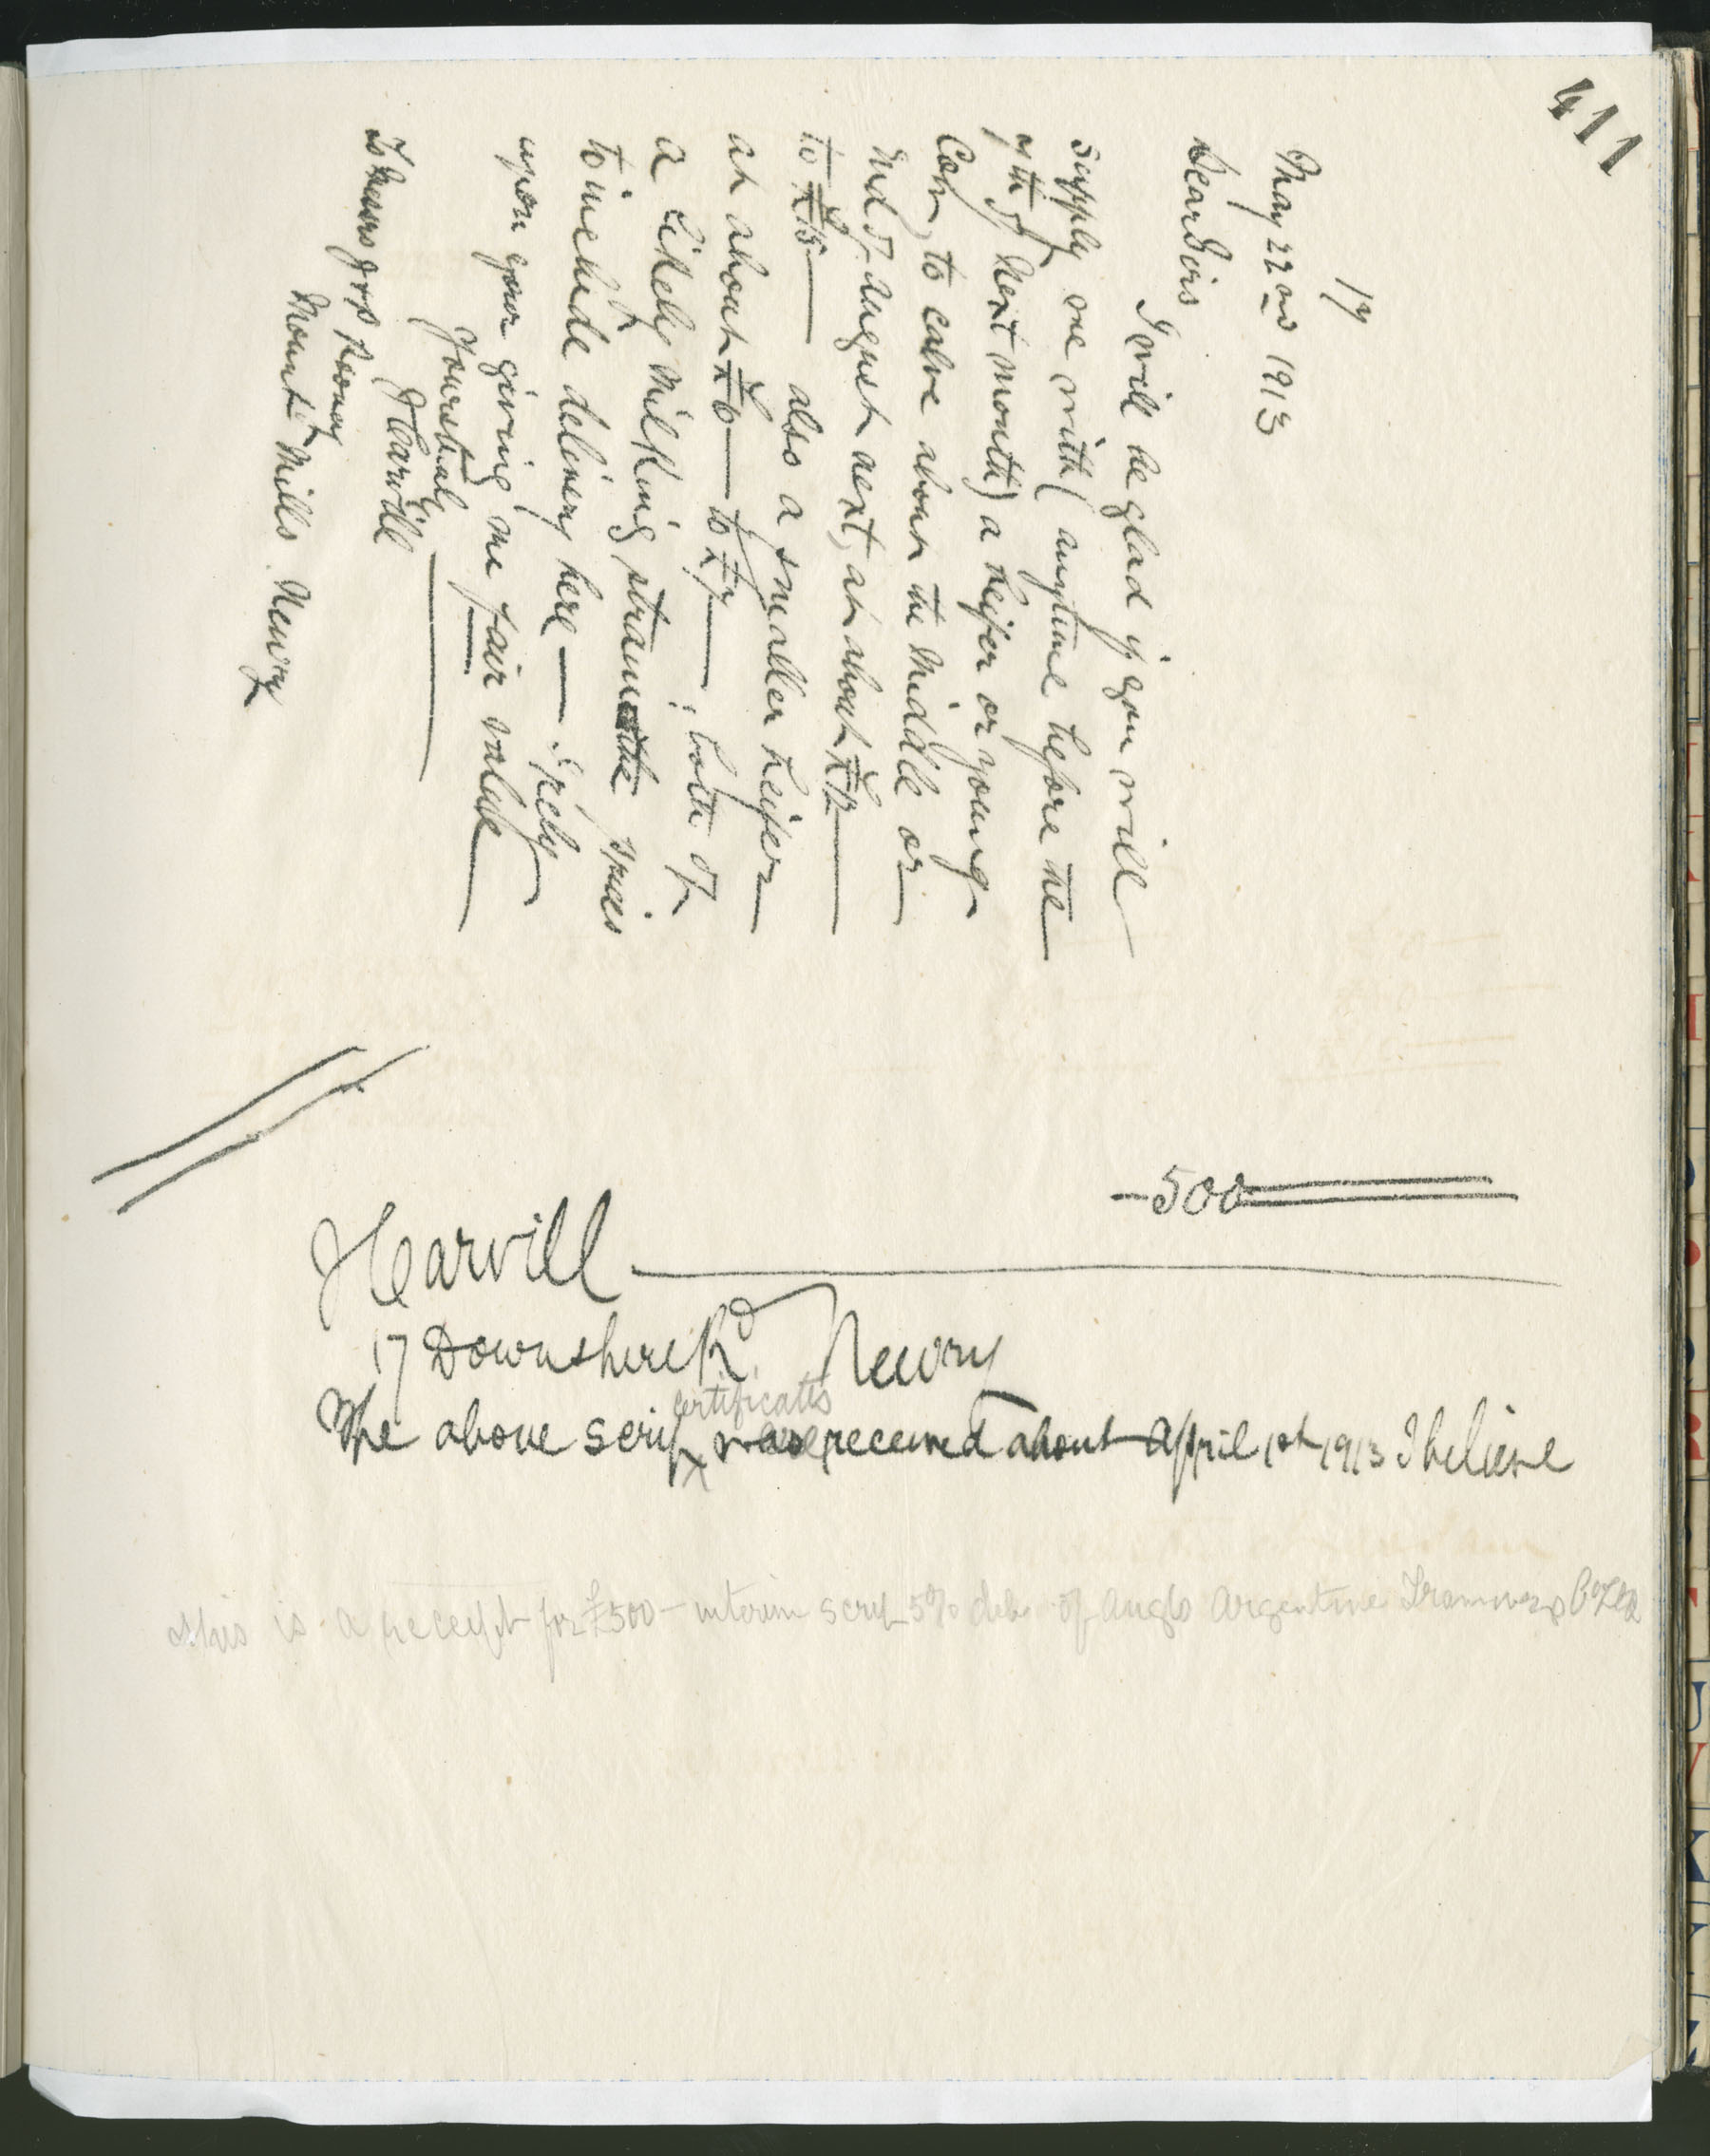 411
17
May 22nd 1913
Dear Sirs
I will be glad if you will
supply me with (anytime before the
7th of next month) a heifer or young
Cow, to calve about the middle or
end of August next, at about £12
to £15 also a smaller heifer
at about £6 to £7; both of
a likely milking strain the prices
to include delivery here — I rely
upon your giving me fair value
Yours truly
J Carvill
To Messrs J & P Rooney
Mount Mills. Newry
500
J Carvill
17 Downshire Rd Newry
certificates
The above scrip was received about April 1st 1913 I believe
This is a receipt for £500 - interim scrip 5% deb of Anglo Argentine Tramways Co Ltd